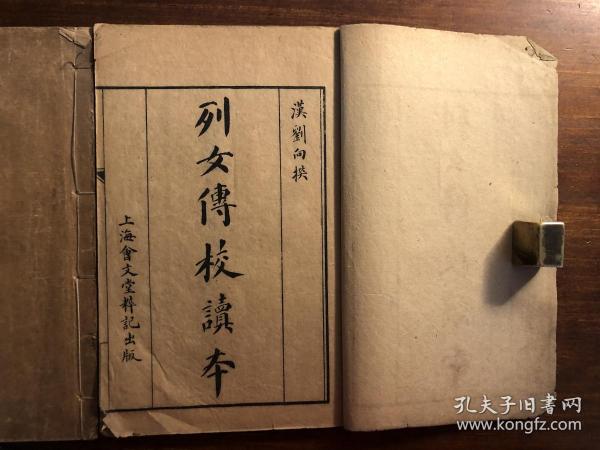 漢劉向撰
列女傳校讀本
上海會文堂粹記出版
孔夫子旧书网
www.kongfz.com